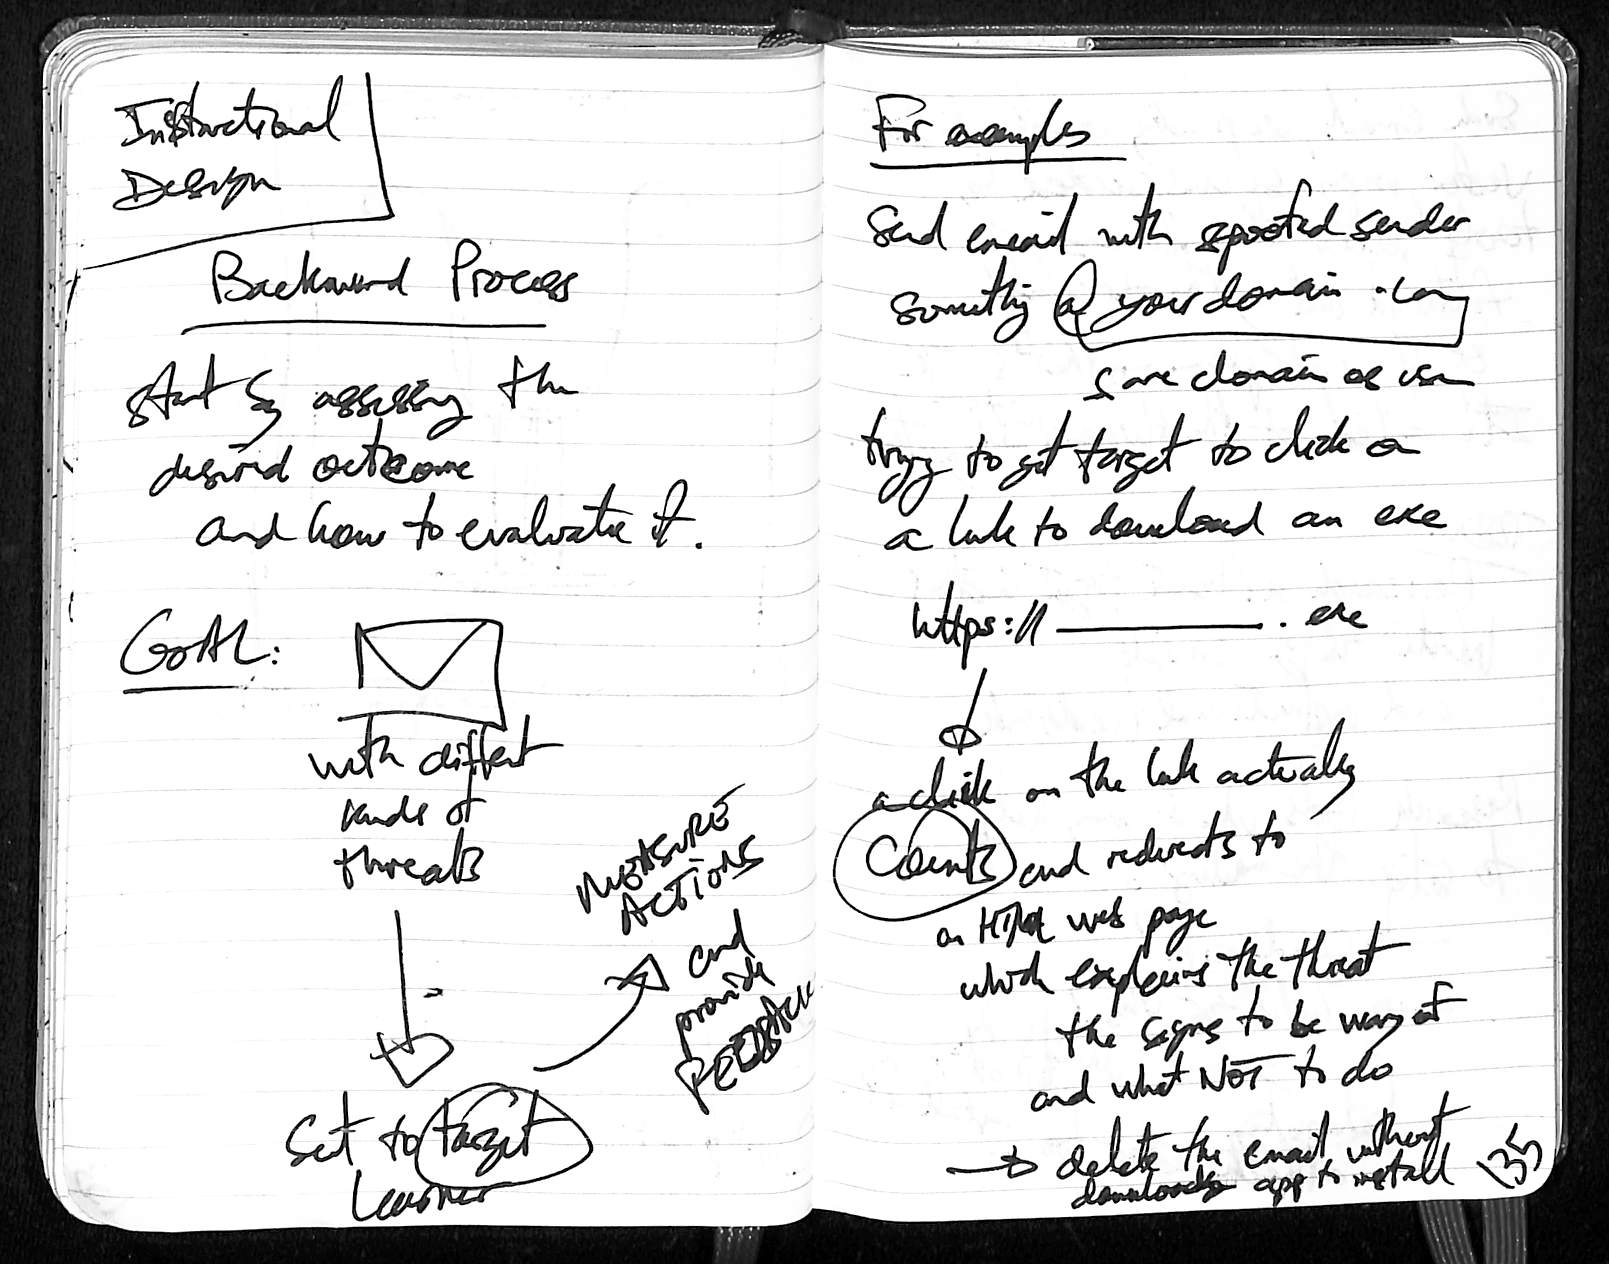 Instructional
Design
Backward Process
start by assessing the
desired outcome
and how to evaluate it.
GOAL:
with different
kinds of
threats
Sent to target
Learner
MEASURE
ACTIONS
and
provide
FEEDBACK
For examples
Send email with spoofed sender
something @ yourdomain.com
same domain as user
trying to get target to click on
a link to download an exe
https:// ________ . exe
a click on the link actually
counts and redirects to
an HTML web page
which explains the threat
the signs to be wary of
and what NOT to do
→ delete the email without
downloads app to install
135